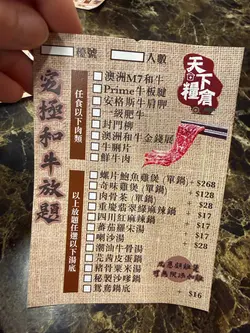 檯號 人數
天下糧倉
究極和牛放題
任食以下肉類
澳洲M7和牛
Prime牛板腱
安格斯牛肩脾
一級肥牛
封門柳
澳洲和牛金錢展
牛脷片
鮮牛肉
以上放題任選以下湯底
螺片鮑魚雞煲（單鍋）+ $268
奇味雞煲（單鍋）+ $128
肉骨茶（單鍋）+ $28
重慶翡翠椒麻辣鍋 + $17
四川紅麻辣鍋 + $17
蕃茄羅宋湯 $17
喇沙湯 $17
潮油牛骨湯 $28
芫茜皮蛋鍋
豬骨粟米湯
秘製沙嗲鍋
鴛鴦鍋底 $16